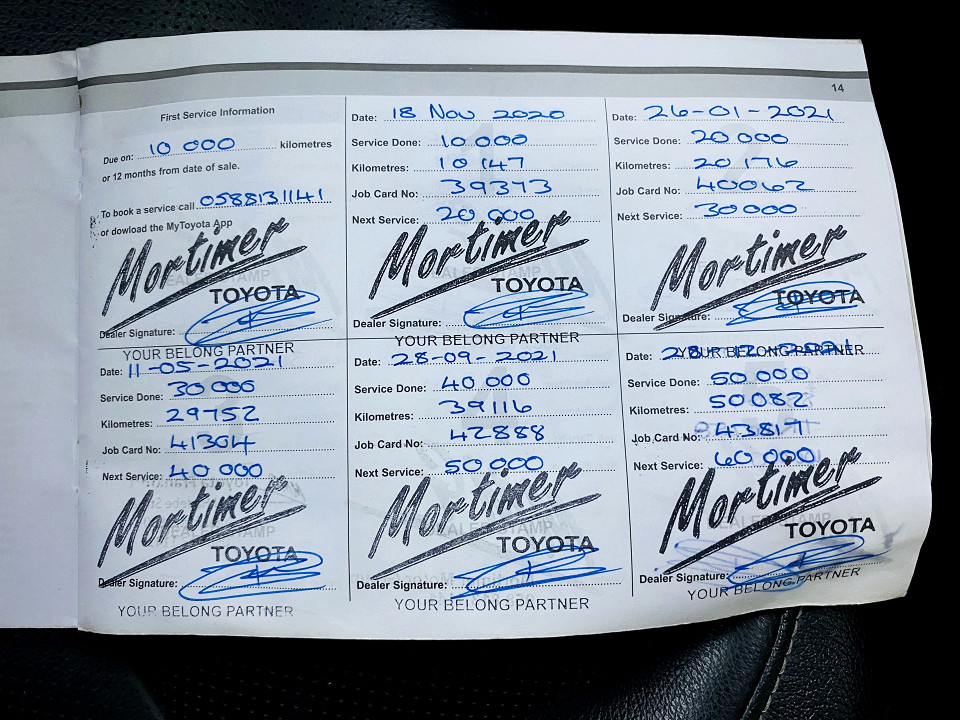 14
First Service Information
Due on: 10 000 kilometres
or 12 months from date of sale.
To book a service call 0588131141
or dowload the MyToyota App
Mortimer
TOYOTA
Dealer Signature:
YOUR BELONG PARTNER
Date: 18 Nov 2020
Service Done: 10 000
Kilometres: 10 147
Job Card No: 39373
Next Service: 20 000
Mortimer
TOYOTA
Dealer Signature:
YOUR BELONG PARTNER
Date: 26-01-2021
Service Done: 20 000
Kilometres: 20 176
Job Card No: 40062
Next Service: 30 000
Mortimer
TOYOTA
Dealer Signature:
YOUR BELONG PARTNER
Date: 11-05-2021
Service Done: 30 000
Kilometres: 29752
Job Card No: 41304
Next Service: 40 000
Mortimer
TOYOTA
Dealer Signature:
YOUR BELONG PARTNER
Date: 28-09-2021
Service Done: 40 000
Kilometres: 39116
Job Card No: 42888
Next Service: 50 000
Mortimer
TOYOTA
Dealer Signature:
YOUR BELONG PARTNER
Date: 28-12-2021
Service Done: 50 000
Kilometres: 50 082
Job Card No: 43817
Next Service: 60 000
Mortimer
TOYOTA
Dealer Signature:
YOUR BELONG PARTNER